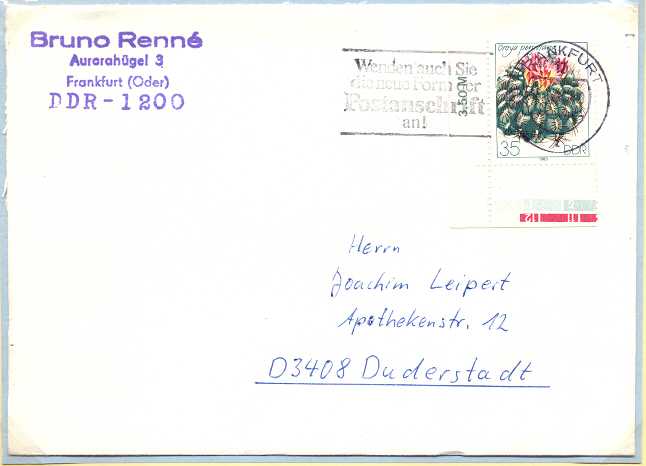 Bruno Renné
Aurorahügel 3
Frankfurt (Oder)
DDR-1200
Wenden auch Sie
die neue Form der
Postanschrift
an!
FRANKFURT
3,50 M
Oroya
35
DDR
1983
11 12
Herrn
Joachim Leipert
Apothekenstr. 12
D3408 Duderstadt